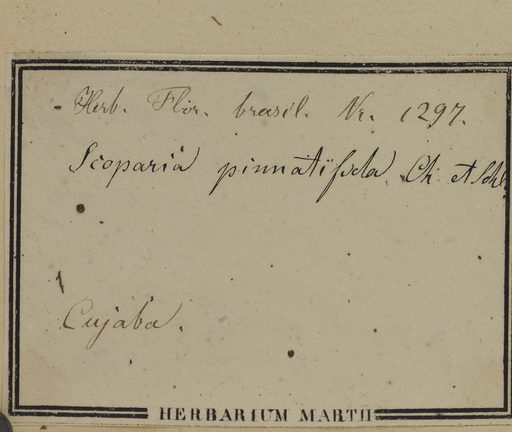 Herb. Flor. brasil. Nr. 1297.
Scoparia pinnatifida Ch et Schl
Cujaba.
HERBARIUM MARTII